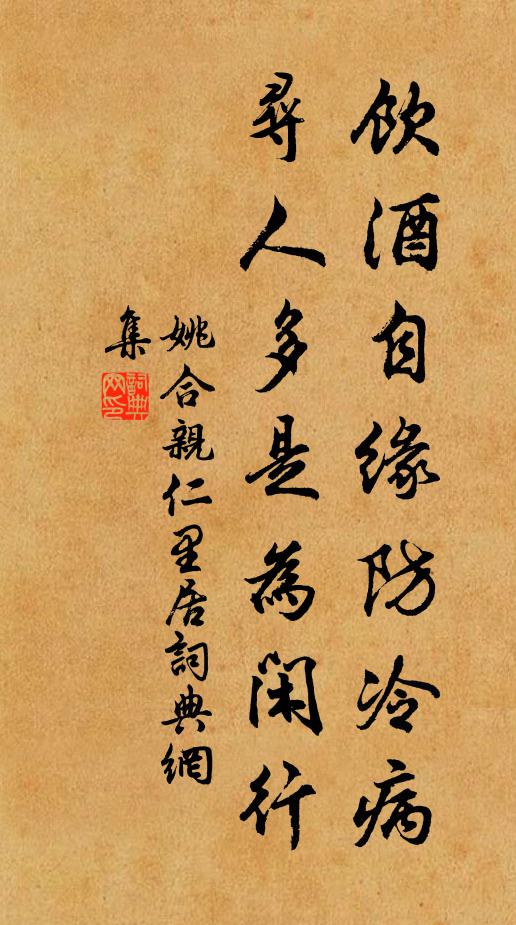 飲酒自緣防冷病
尋人多是為閑行
姚合親仁里居詞典網
集
詞典網印